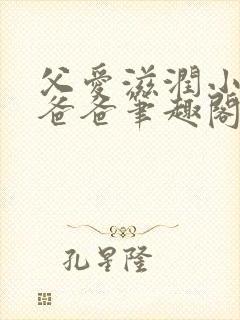 父愛滋潤小
爸爸筆趣閣
孔星隆